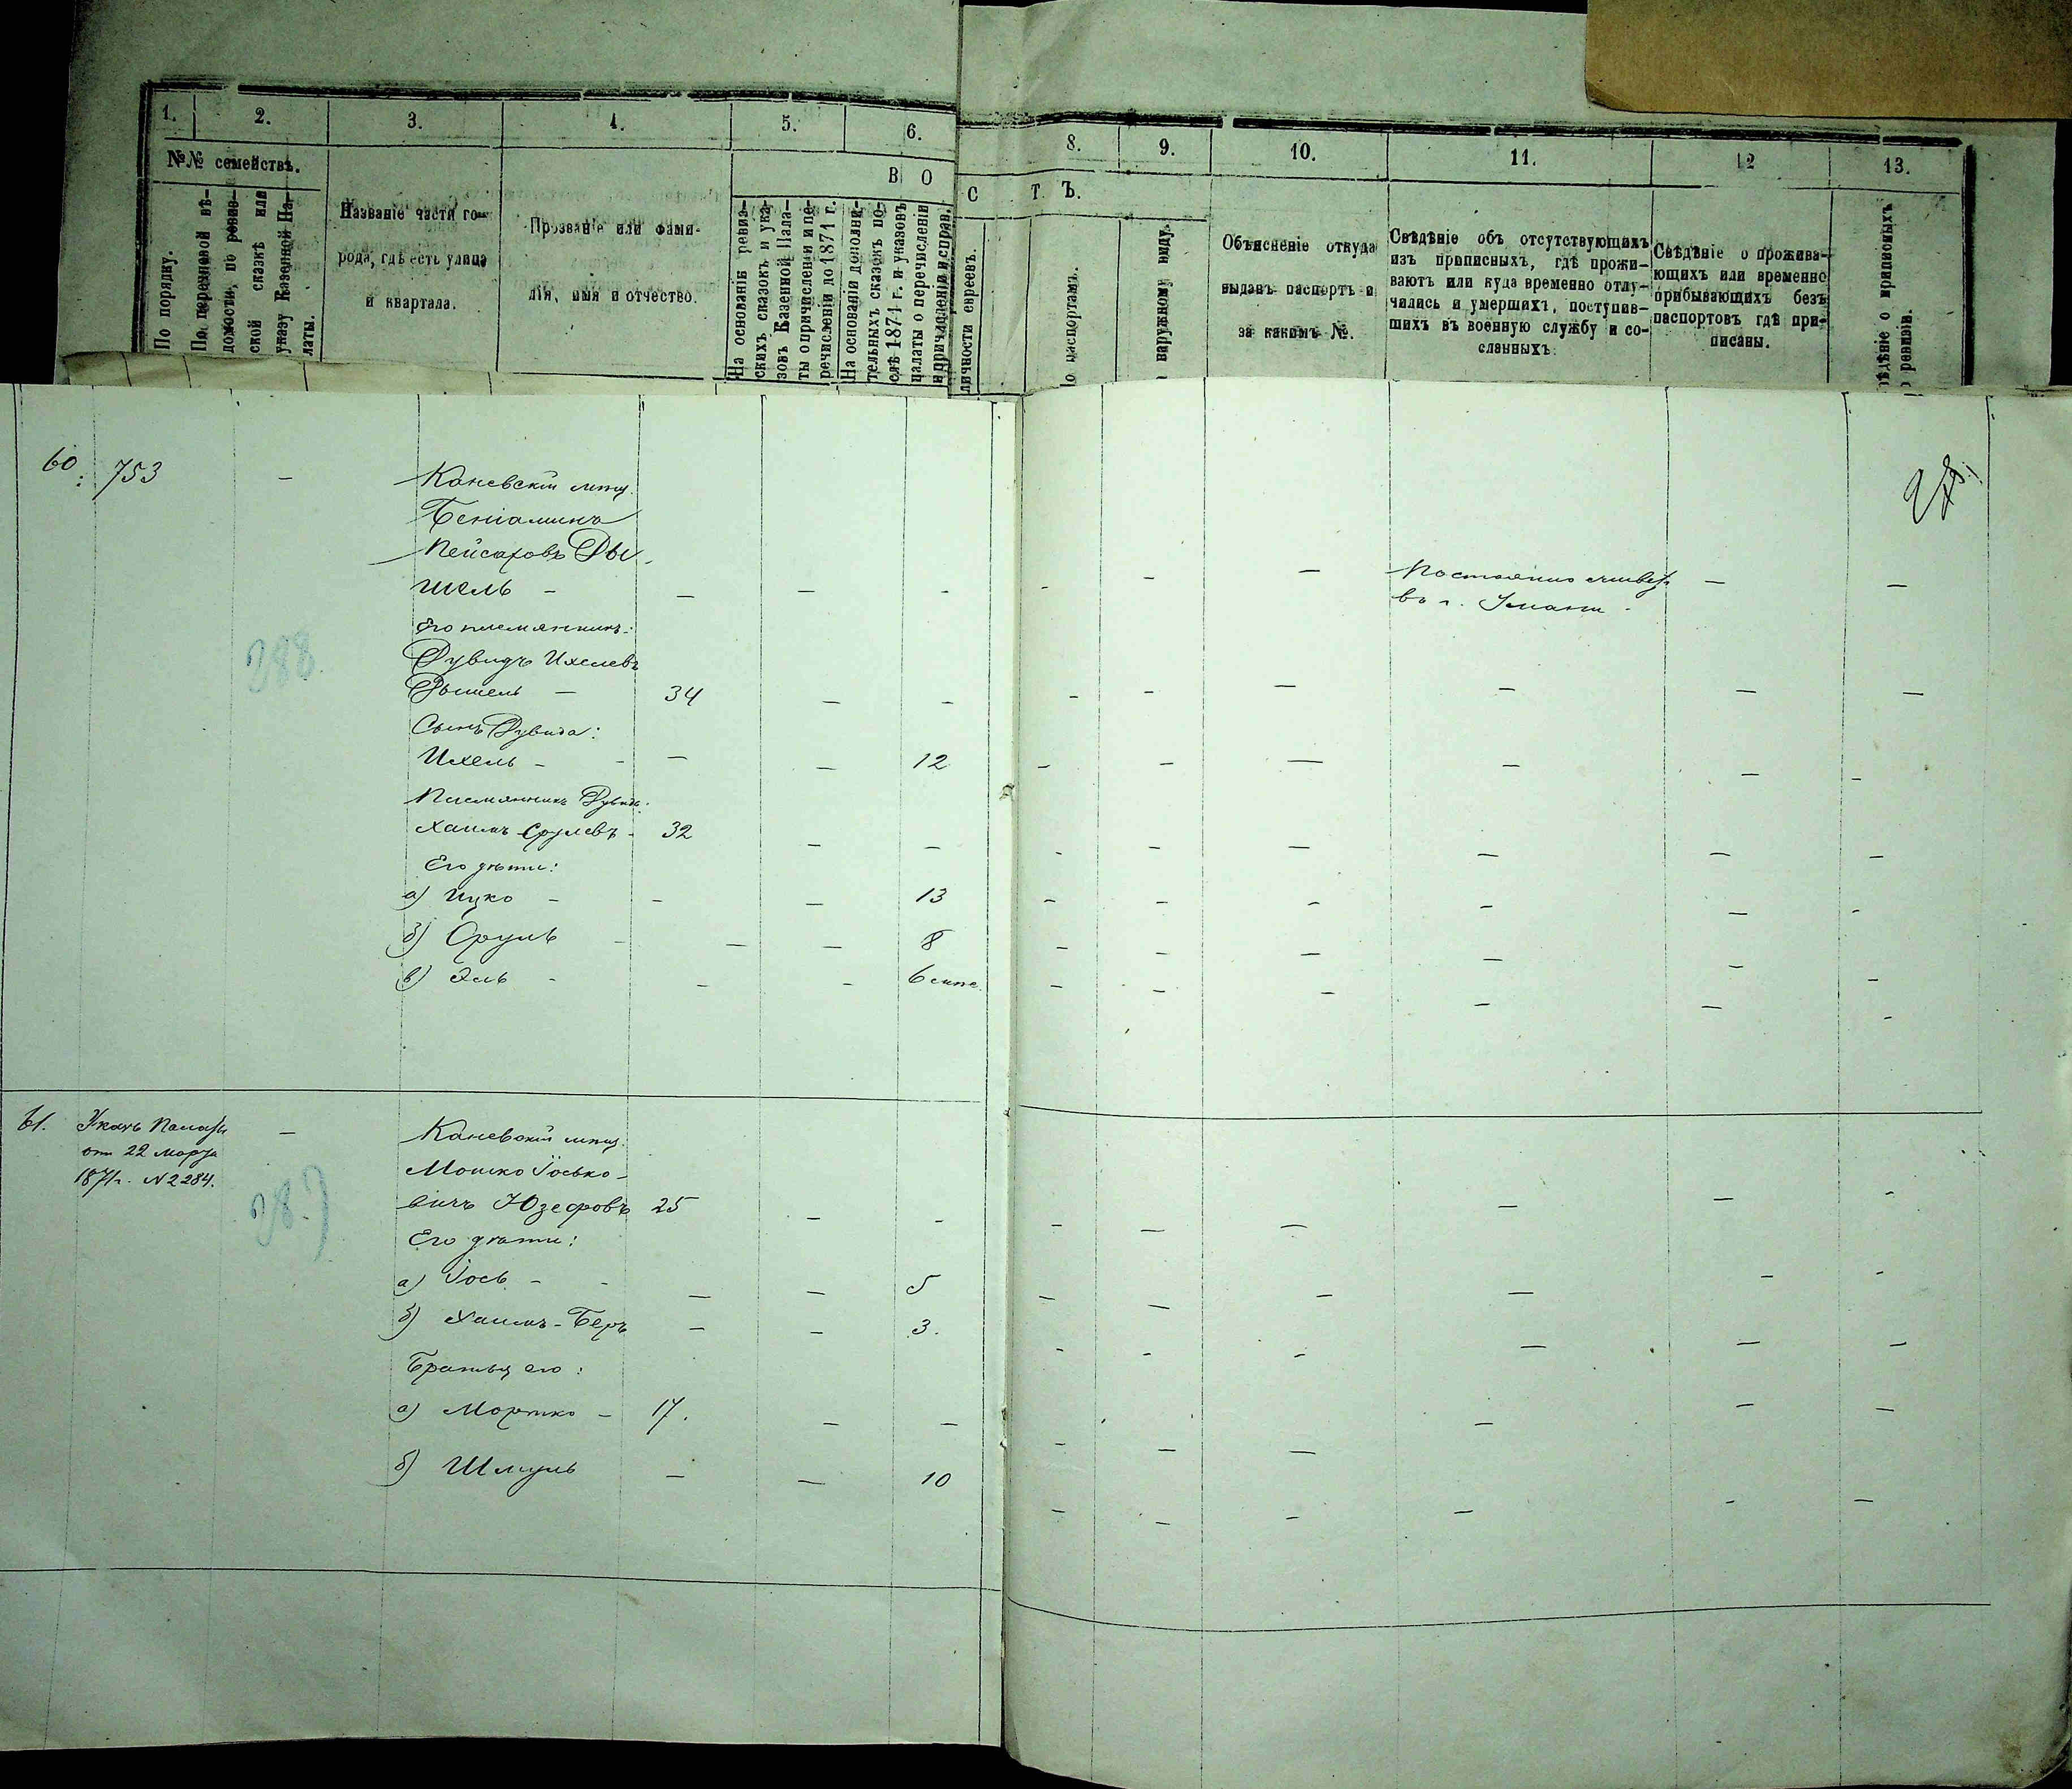 1. 2. 3. 4. 5. 6. 8. 9. 10. 11. 12 13.
№№ семействъ.
По порядку.
По перечневой вѣ-
домости, по ревиз-
ской сказкѣ или
указу Казенной Па-
латы.
Названіе части го-
рода, гдѣ есть улица
и квартала.
Прозваніе или фами-
лія, имя и отчество.
В О
С Т Ъ.
На основаніи ревиз-
скихъ сказокъ и ука-
зовъ Казенной Пала-
ты о причисленіи и пе-
речисленіи до 1871 г.
На основаніи дополни-
тельныхъ сказокъ по-
слѣ 1871 г. и указовъ
палаты о перечисленіи
и причисленіи и справ.
личности евреевъ.
о паспортамъ.
наружному виду.
Объясненіе откуда
выданъ паспортъ и
за какимъ №.
Свѣдѣніе объ отсутствующихъ
изъ приписныхъ, гдѣ прожи-
ваютъ или куда временно отлу-
чились и умершихъ, поступив-
шихъ въ военную службу и со-
сланныхъ.
Свѣдѣніе о прожива-
ющихъ или временно
прибывающихъ безъ
паспортовъ гдѣ при-
писаны.
ѣдѣніе о приписныхъ
ревизіи.
60. 753 — Каневскій мѣщ.
Беніаминъ
Пейсаховъ Ды-
шель — — — - - — — Постоянно живетъ — —
въ г. Умани -
288
Его племянникъ:
Дувидъ Ихелевъ
Дышель — 34 — - - - — — — —
Сынъ Дувида:
Ихель - - — — 12 - - — — — -
Племянникъ Дувида.
Хаимъ Срулевъ - 32 — — - - — — — —
Его дѣти:
а) Ицко - - — 13 - - - - — -
б) Сруль - — — 8 - - — — - -
в) Эль - - - 6 - - - — — -
61. Указъ Палаты — Каневскій мѣщ.
отъ 22 марта
1871 г. N 2284.
Мошко Іосько-
вичъ Юзефовъ 25 — - - — — — — -
Его дѣти:
а) Іось - - — — 5 - — - — — -
б) Хаимъ-Беръ — — 3. - - - — — —
Братья его:
а) Мортко - 17. — — - — — — — —
б) Шмуль — — 10 - - - — - —